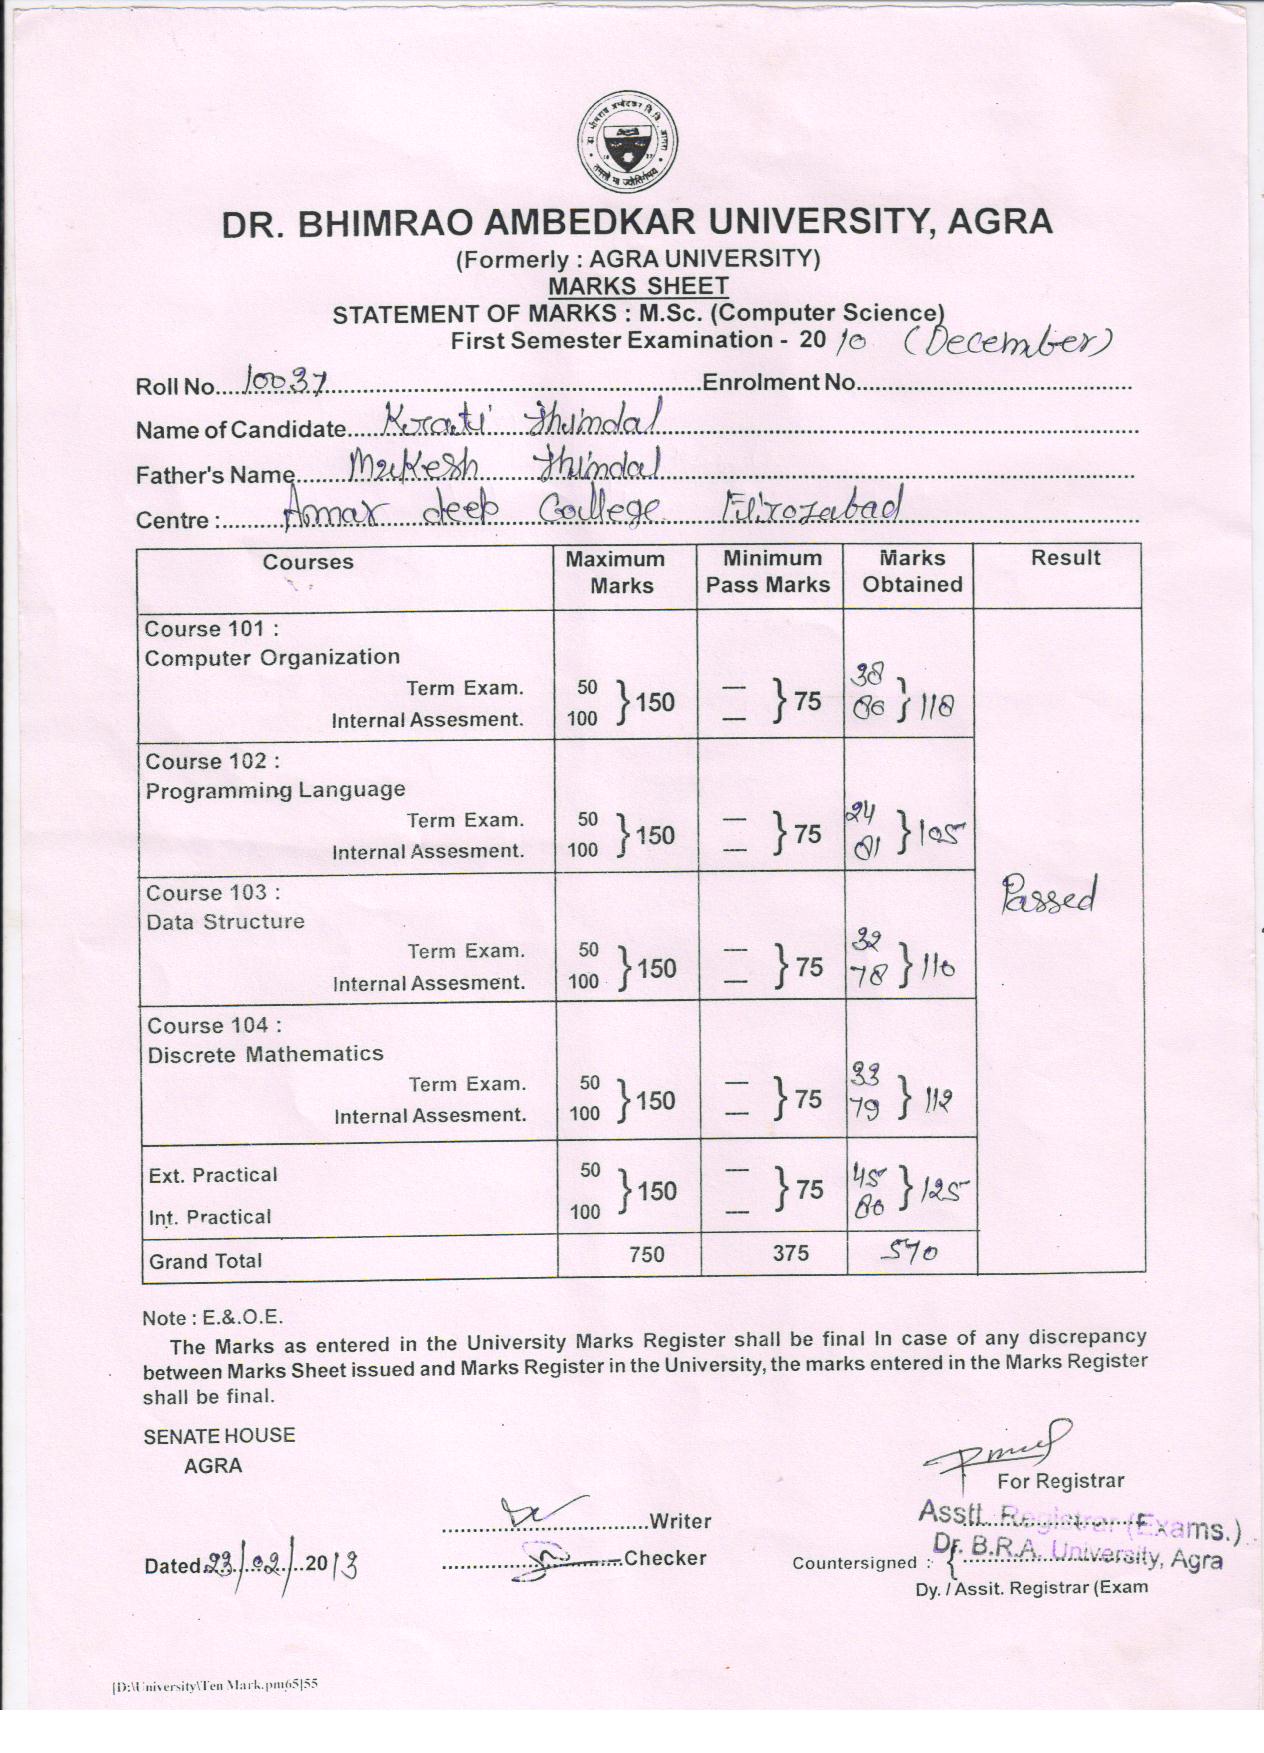 डा. भीमराव अम्बेडकर वि. वि. आगरा
19 27
तमसो मा ज्योतिर्गमय
DR. BHIMRAO AMBEDKAR UNIVERSITY, AGRA
(Formerly : AGRA UNIVERSITY)
MARKS SHEET
STATEMENT OF MARKS : M.Sc. (Computer Science)
First Semester Examination - 2010 (December)
Roll No....10037....Enrolment No....
Name of Candidate....Kirati Jhindal....
Father's Name....Mukesh Jhindal....
Centre :....Amar deep College Firozabad....
Courses Maximum Marks Minimum Pass Marks Marks Obtained Result
Course 101 :
Computer Organization
Term Exam. 50 — 38
} 150 } 75 } 118
Internal Assesment. 100 — 80
Course 102 :
Programming Language
Term Exam. 50 — 24
} 150 } 75 } 105
Internal Assesment. 100 — 81
Passed
Course 103 :
Data Structure
Term Exam. 50 — 32
} 150 } 75 } 110
Internal Assesment. 100 — 78
Course 104 :
Discrete Mathematics
Term Exam. 50 — 33
} 150 } 75 } 112
Internal Assesment. 100 — 79
Ext. Practical 50 — 45
} 150 } 75 } 125
Int. Practical 100 — 80
Grand Total 750 375 570
Note : E.&.O.E.
The Marks as entered in the University Marks Register shall be final In case of any discrepancy
between Marks Sheet issued and Marks Register in the University, the marks entered in the Marks Register
shall be final.
SENATE HOUSE
AGRA
For Registrar
Asstt. Registrar (Exams.)
....Writer
Dr. B.R.A. University, Agra
Dated 23/02/2013 ....Checker Countersigned : {....
Dy. / Assit. Registrar (Exam
[D:\University\Ten Mark.pm65]55